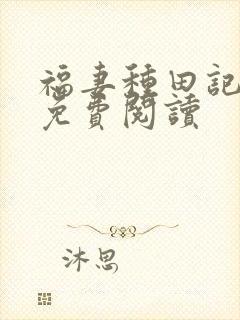 福妻種田記
免費閱讀
沐思